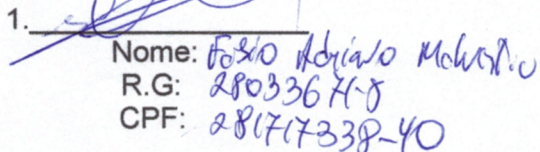 1.
Nome: Fabio Adriano
R.G: 28033671-8
CPF: 281717338-40